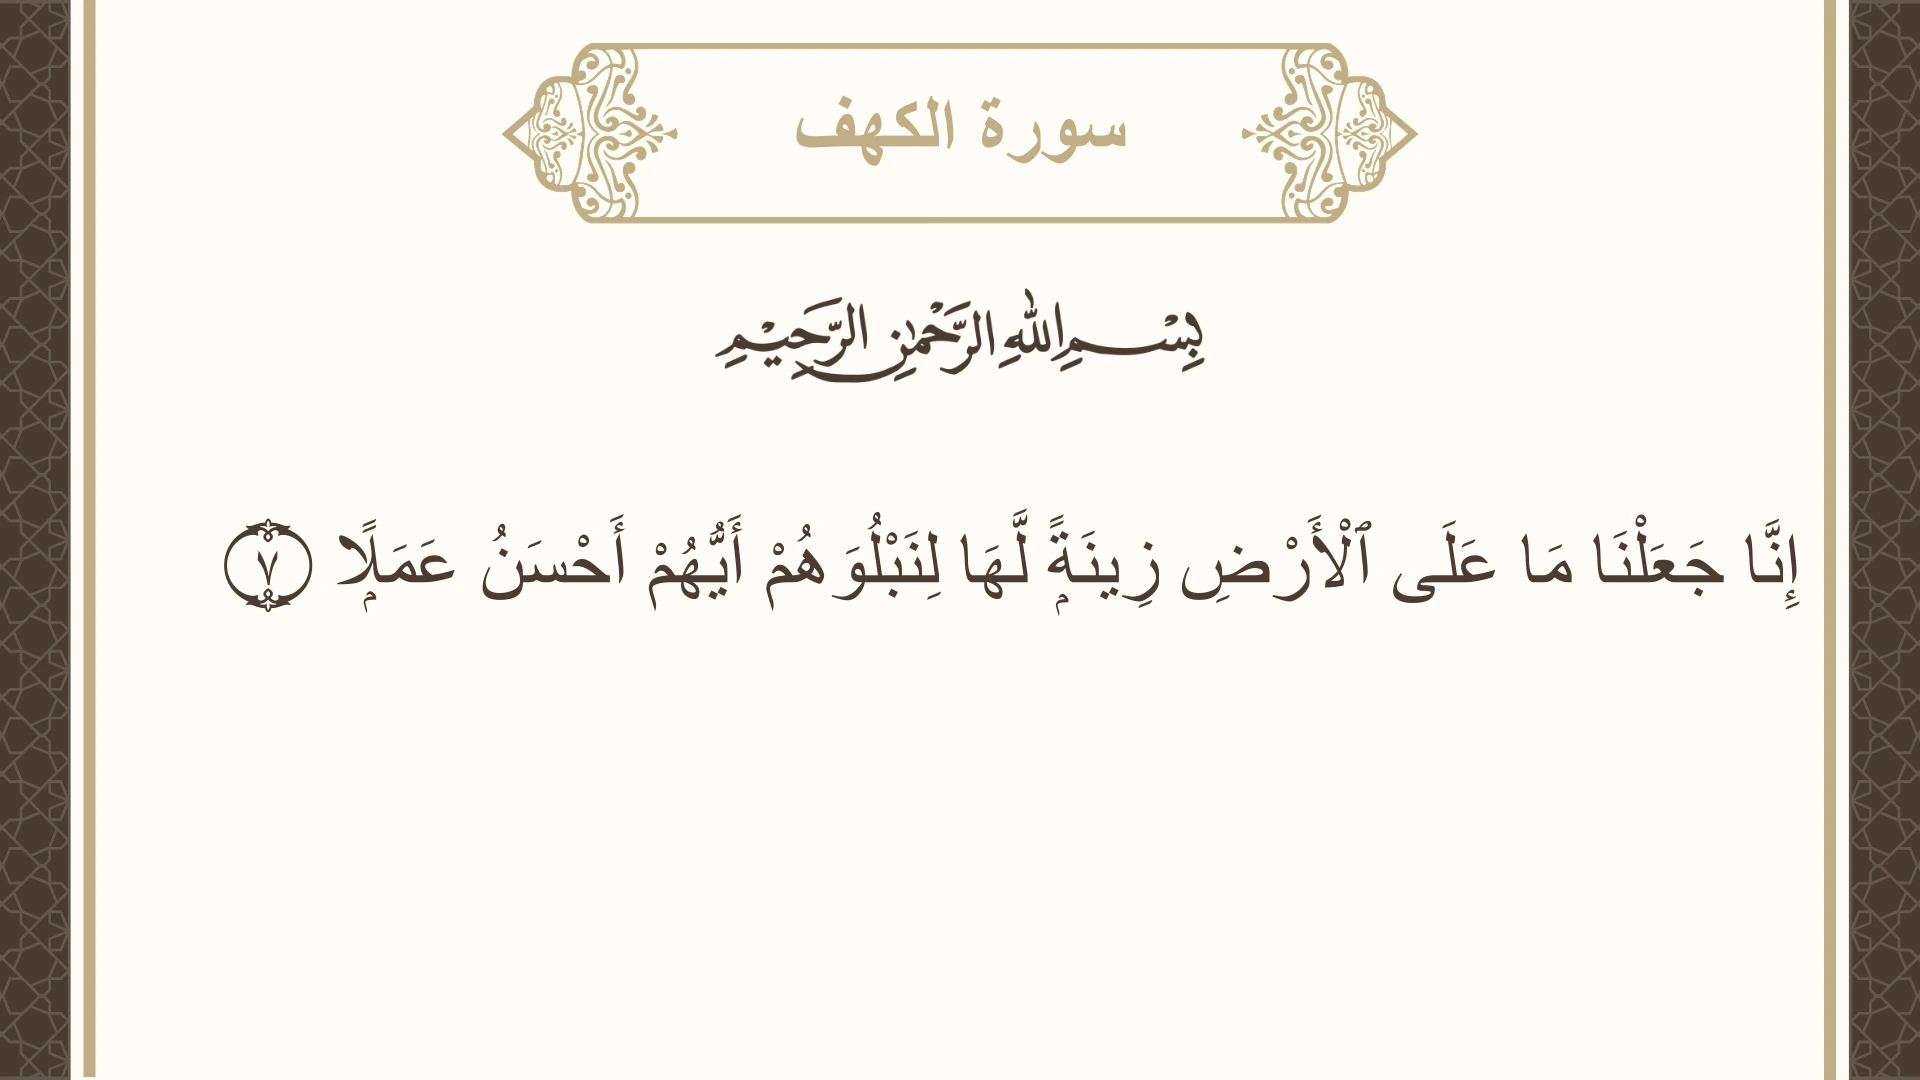 سورة الكهف
بِسْمِ اللهِ الرَّحْمٰنِ الرَّحِيْمِ
إِنَّا جَعَلْنَا مَا عَلَى ٱلْأَرْضِ زِينَةًۭ لَّهَا لِنَبْلُوَهُمْ أَيُّهُمْ أَحْسَنُ عَمَلًۭا ٧